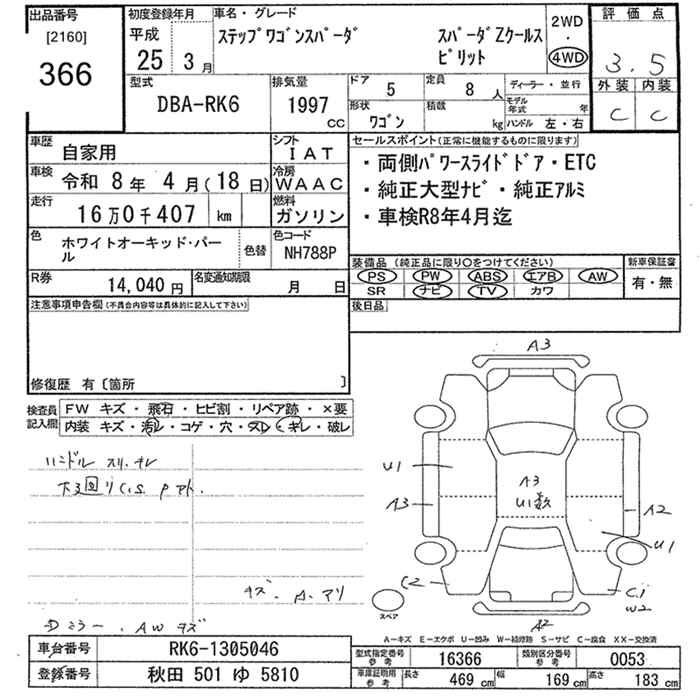 出品番号
[2160]
366
初度登録年月
平成
25 3月
車名・グレード
ステップワゴンスパーダ スパーダZクールス
ピリット
2WD
・
4WD
評価点
3.5
外装 内装
C C
型式
DBA-RK6
排気量
1997
CC
ドア 5
定員 8人
ディーラー・並行
形状 ワゴン
積載 kg
モデル年式 年
ハンドル 左・右
車歴 自家用
シフト IAT
車検 令和 8年 4月(18日)
冷房 WAAC
走行 16万0千407 km
燃料 ガソリン
色 ホワイトオーキッド・パー
ル
色替
色コード NH788P
R券 14,040円
名変通知期限 月 日
セールスポイント(正常に機能するものに限ります)
・両側パワースライドドア・ETC
・純正大型ナビ・純正アルミ
・車検R8年4月迄
装備品(純正品に限り○をつけてください)
PS PW ABS エアB AW
SR ナビ TV カワ
新車保証書
有・無
後日品
注意事項申告欄(不具合内容等は具体的に記入して下さい)
修復歴 有〔箇所 〕
検査員
記入欄
FW キズ・飛石・ヒビ割・リペア跡・×要
内装 キズ・汚レ・コゲ・穴・スレ・キレ・破レ
ハンドル スリ、キレ
下3回り C.S. Pアト.
キズ. A. アリ
Dミラー. AWキズ
A3
U1
A3
A3
U1数
A2
U1
C2
C1
W2
A2
スペア
A-キズ E-エクボ U-凹み W-補修跡 S-サビ C-腐食 XX-交換済
車台番号 RK6-1305046
登録番号 秋田 501 ゆ 5810
型式指定番号
参考
16366
類別区分番号
参考
0053
車庫証明用
参考
長さ 469cm
幅 169cm
高さ 183cm